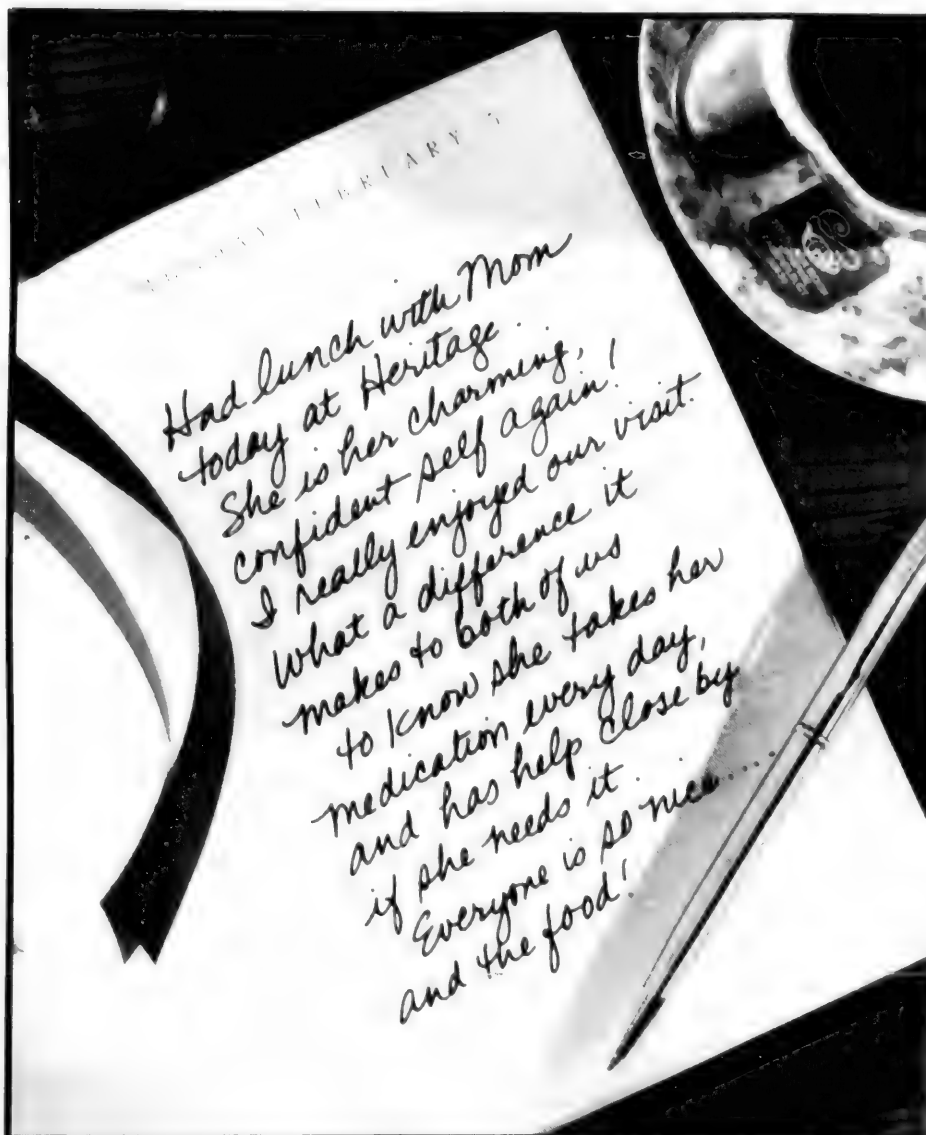 FEBRUARY
Had lunch with Mom
today at Heritage.
She is her charming,
confident self again!
I really enjoyed our visit.
What a difference it
makes to both of us
to know she takes her
medication every day,
and has help close by
if she needs it.
Everyone is so nice....
and the food!